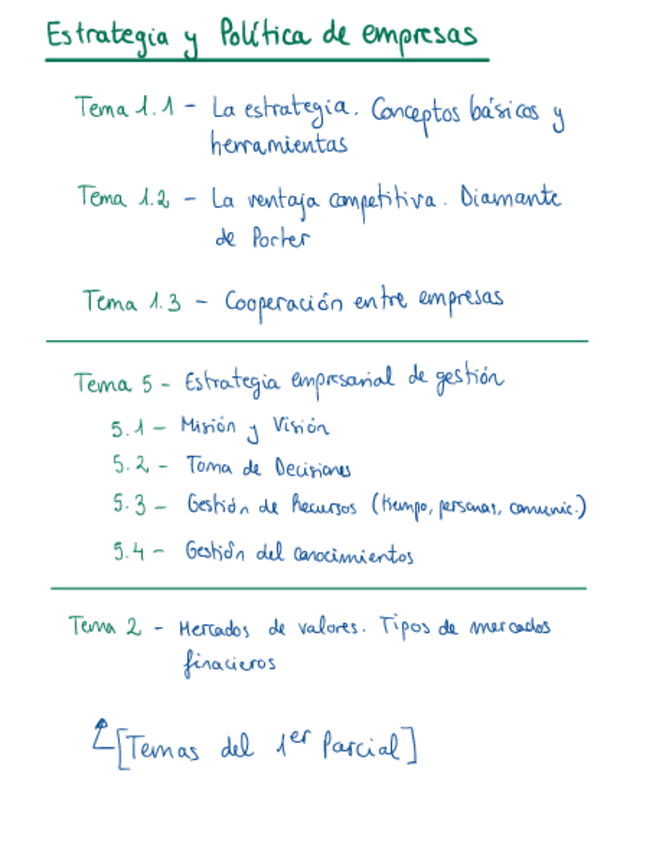 Estrategia y Política de empresas
Tema 1.1 - La estrategia. Conceptos básicos y
herramientas
Tema 1.2 - La ventaja competitiva. Diamante
de Porter
Tema 1.3 - Cooperación entre empresas
Tema 5 - Estrategia empresarial de gestión
5.1 - Misión y Visión
5.2 - Toma de Decisiones
5.3 - Gestión de Recursos (tiempo, personas, comunic.)
5.4 - Gestión del conocimientos
Tema 2 - Mercados de valores. Tipos de mercados
finacieros
[Temas del 1er Parcial]